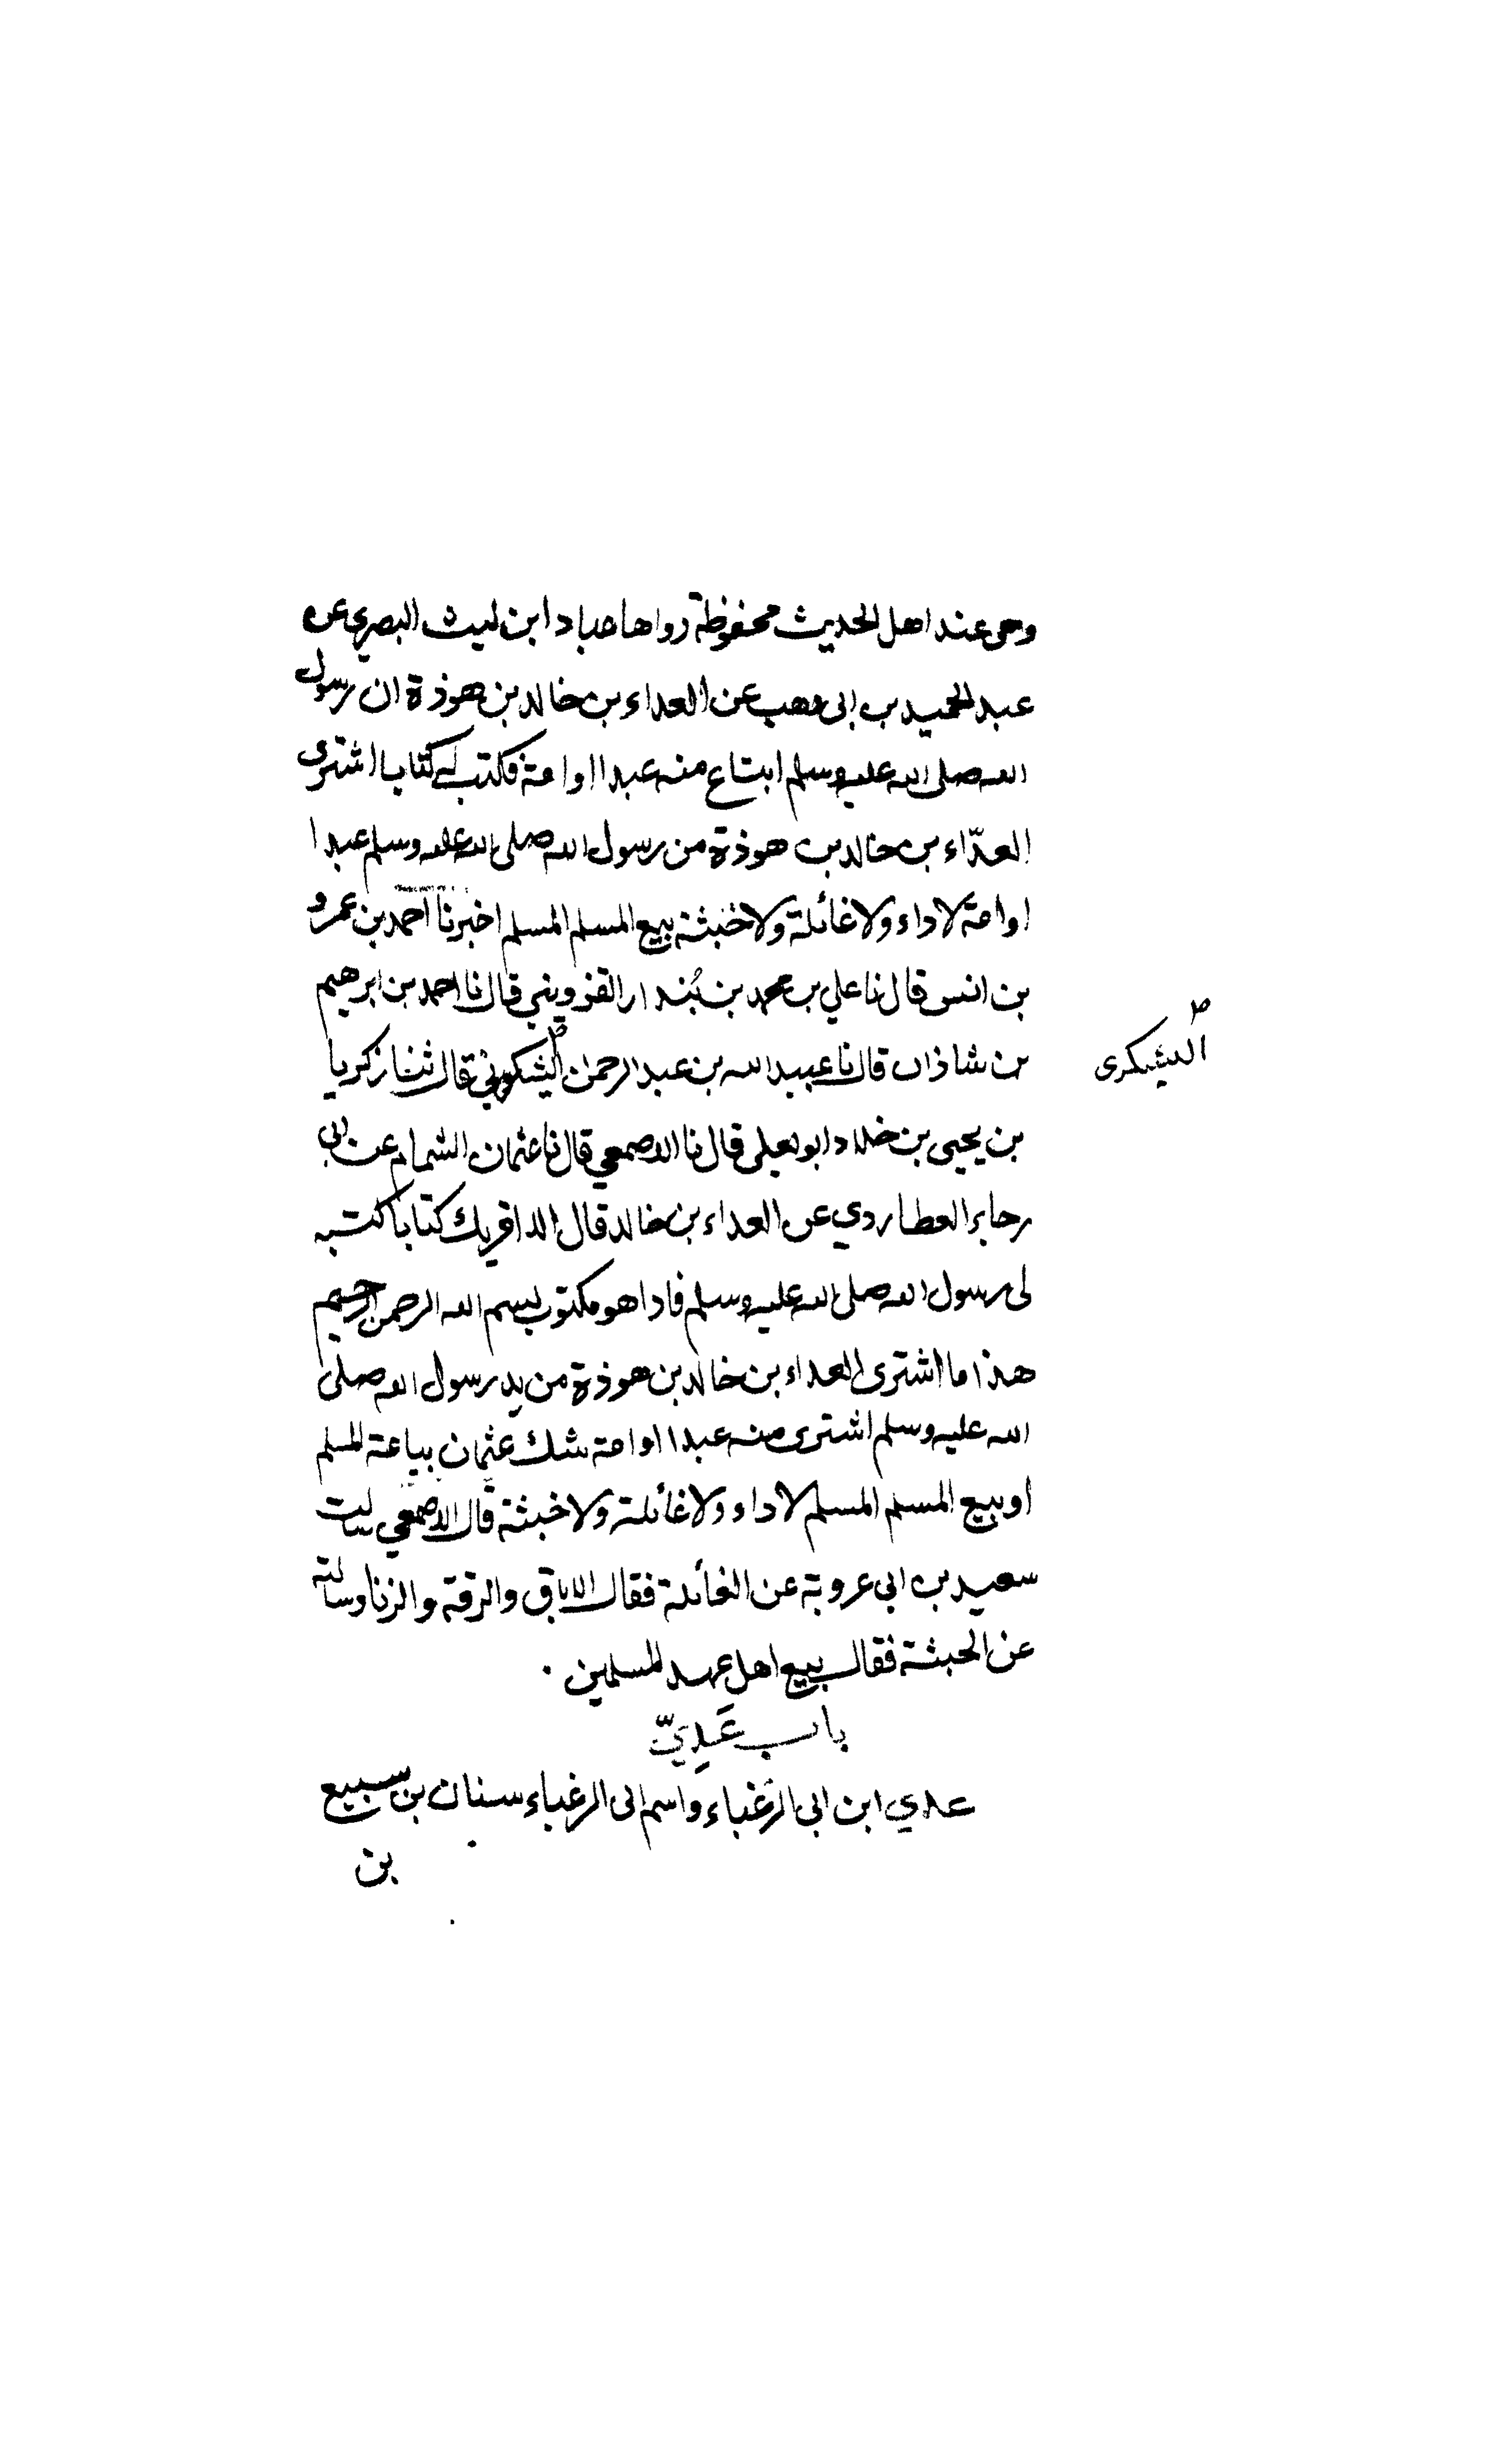 وهى عند اهل الحديث محفوظة رواها عباد ابن ليث البصري عن
عبد الحميد بن ابى وهب عن العداء بن خالد بن هوذة ان رسول
الله صلى الله عليه وسلم ابتاع منه عبدا او امة فكتب له كتابا اشترى
العدّاء بن خالد بن هوذة من رسول الله صلى الله عليه وسلم عبدا
او امة لا داء ولا غائلة ولا خبثة بيع المسلم المسلم اخبرنا احمد بن عمرو
بن انس قال نا علي بن محمد بن بُندار القزويني قال نا احمد بن ابرهيم
بن شاذان قال نا عبيد الله بن عبد الرحمن قال ثنا زكريا
اليشكرى
بن يحيى بن خلاد ابو يعلى قال نا الاصمعي قال نا عثمان الشمام عن ابى
رجاء العطاردي عن العداء بن خالد قال الا اقريك كتابا كتبه
لى رسول الله صلى الله عليه وسلم فاذا هو مكتوب بسم الله الرحمن الرحيم
هذا ما اشترى العداء بن خالد بن هوذة من يد رسول الله صلى
الله عليه وسلم اشترى منه عبدا او امة شك عثمان بياعة المسلم
او بيع المسلم المسلم لا داء ولا غائلة ولا خبثة قال الاصمعي سالت
سعيد بن ابى عروبة عن الغائلة فقال الاباق والرقة والزنا وسالته
عن الخبثة فقال بيع اهل عهد المسلمين .
باب عَدِيّ
عدي ابن ابى الزغباء واسم ابى الزغباء سنان بن سبيع
بن